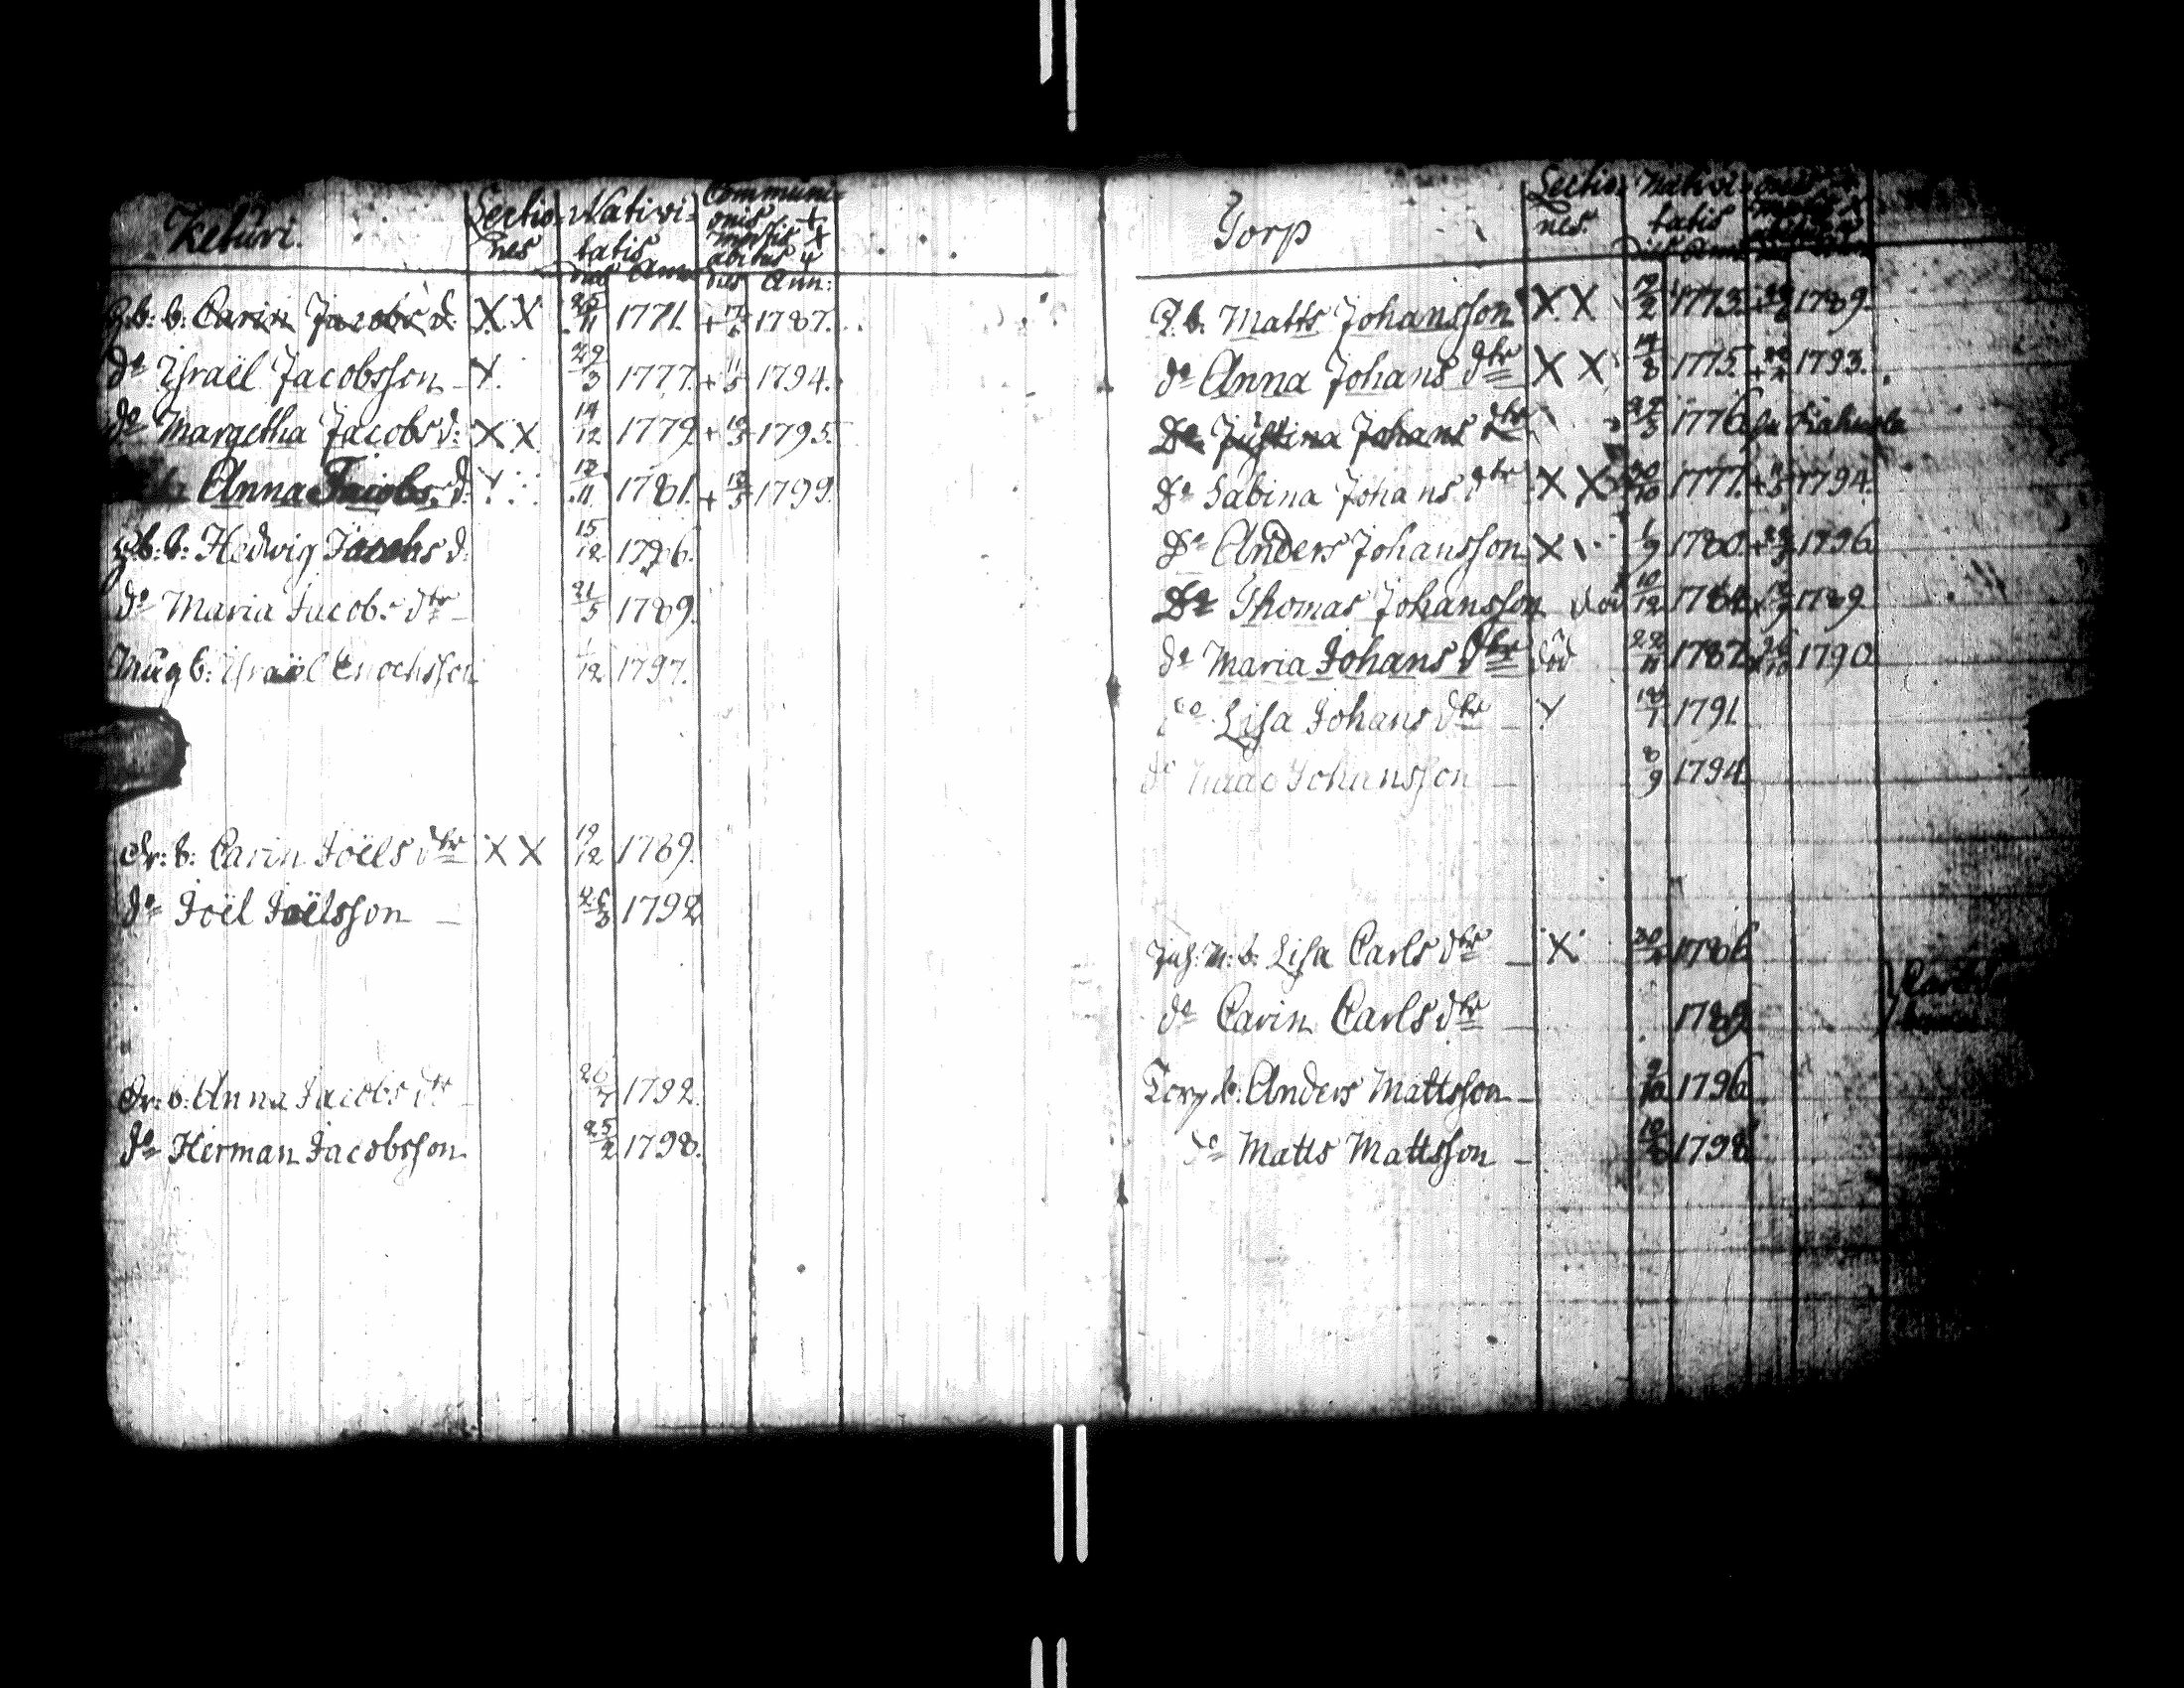 Keturi. Lectio- nes Nativi- tatis dies Ann Communi- onis + mortis x abitus 4 dies Ann:
b: b: Carin Jacobs d: X X 25/11 1771. + 17/5 1787.
do Israël Jacobsson X. 29/3 1777. + 11/5 1794.
do Margetha Jacobs d: X X 14/12 1779. + 10/5 1795.
Anna Jacobs d: 12/11 1781. + 12/5 1799.
b: b: Hedwig Jacobs d: 15/12 1786.
do Maria Jacobs dtr 21/5 1789.
b: Israël Enochsson 1/12 1797.
dr: b: Carin Joëls dtr X X 19/12 1789.
do Joël Joëlsson 1792
dr: b: Anna Jacobs dtr 1792.
do Herman Jacobsson 25/2 1798.
Torp Lectio- nes. Nativi- tatis dies Ann
b. Matts Johansson X X 1773. 1789.
do Anna Johans dtr X X 14/8 1775. 1793.
Do Justina Johans dtr 1776
Do Sabina Johans dtr X X 30/10 1777. + 11/5 1794.
Do Anders Johansson X 1/9 1780. 1796
Do Thomas Johansson död 10/12 1784 1789
do Maria Johans dtr död 22/11 1787. 1790
do Lisa Johans dtr 1791
do Johansson 8/9 1794
b: Lisa Carls dtr X 1786
do Carin Carls dtr 1789
Torp b: Anders Mattsson 9/10 1796
do Matts Mattsson 1798